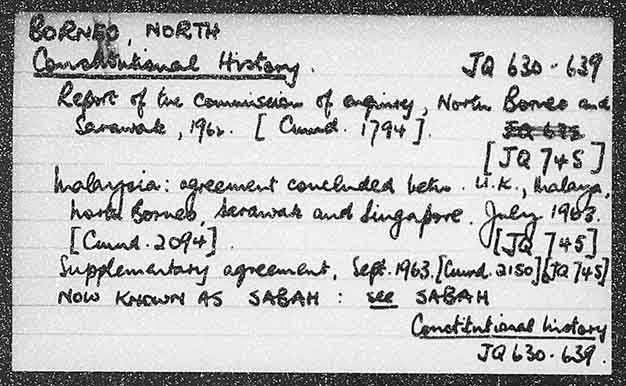 BORNEO, NORTH
Constitutional History. JQ 630-639
Report of the commission of enquiry, North Borneo and
Sarawak, 1962. [Cmnd. 1794].
[JQ 745]
Malaysia: agreement concluded betw. U.K., Malaya,
North Borneo, Sarawak and Singapore. July 1963.
[Cmnd. 2094]. [JQ 745]
Supplementary agreement, Sept. 1963. [Cmnd. 2150] [JQ 745]
NOW KNOWN AS SABAH : see SABAH
Constitutional history
JQ 630-639.